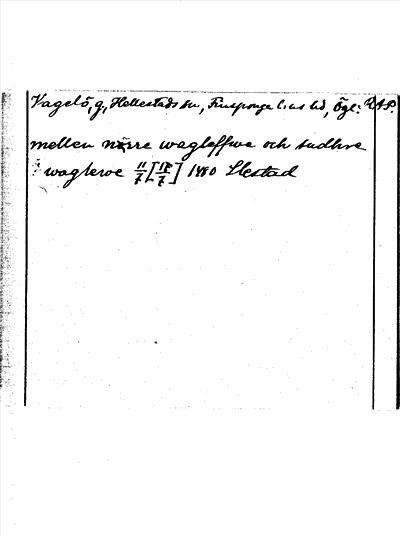 Vagelö, g, Hellestads sn, Finspånga l:as hd, Ögl: RAP.
mellen nørre wagleffwe och sudhre
waglewe 11/7 [12/7] 1480 Slestad